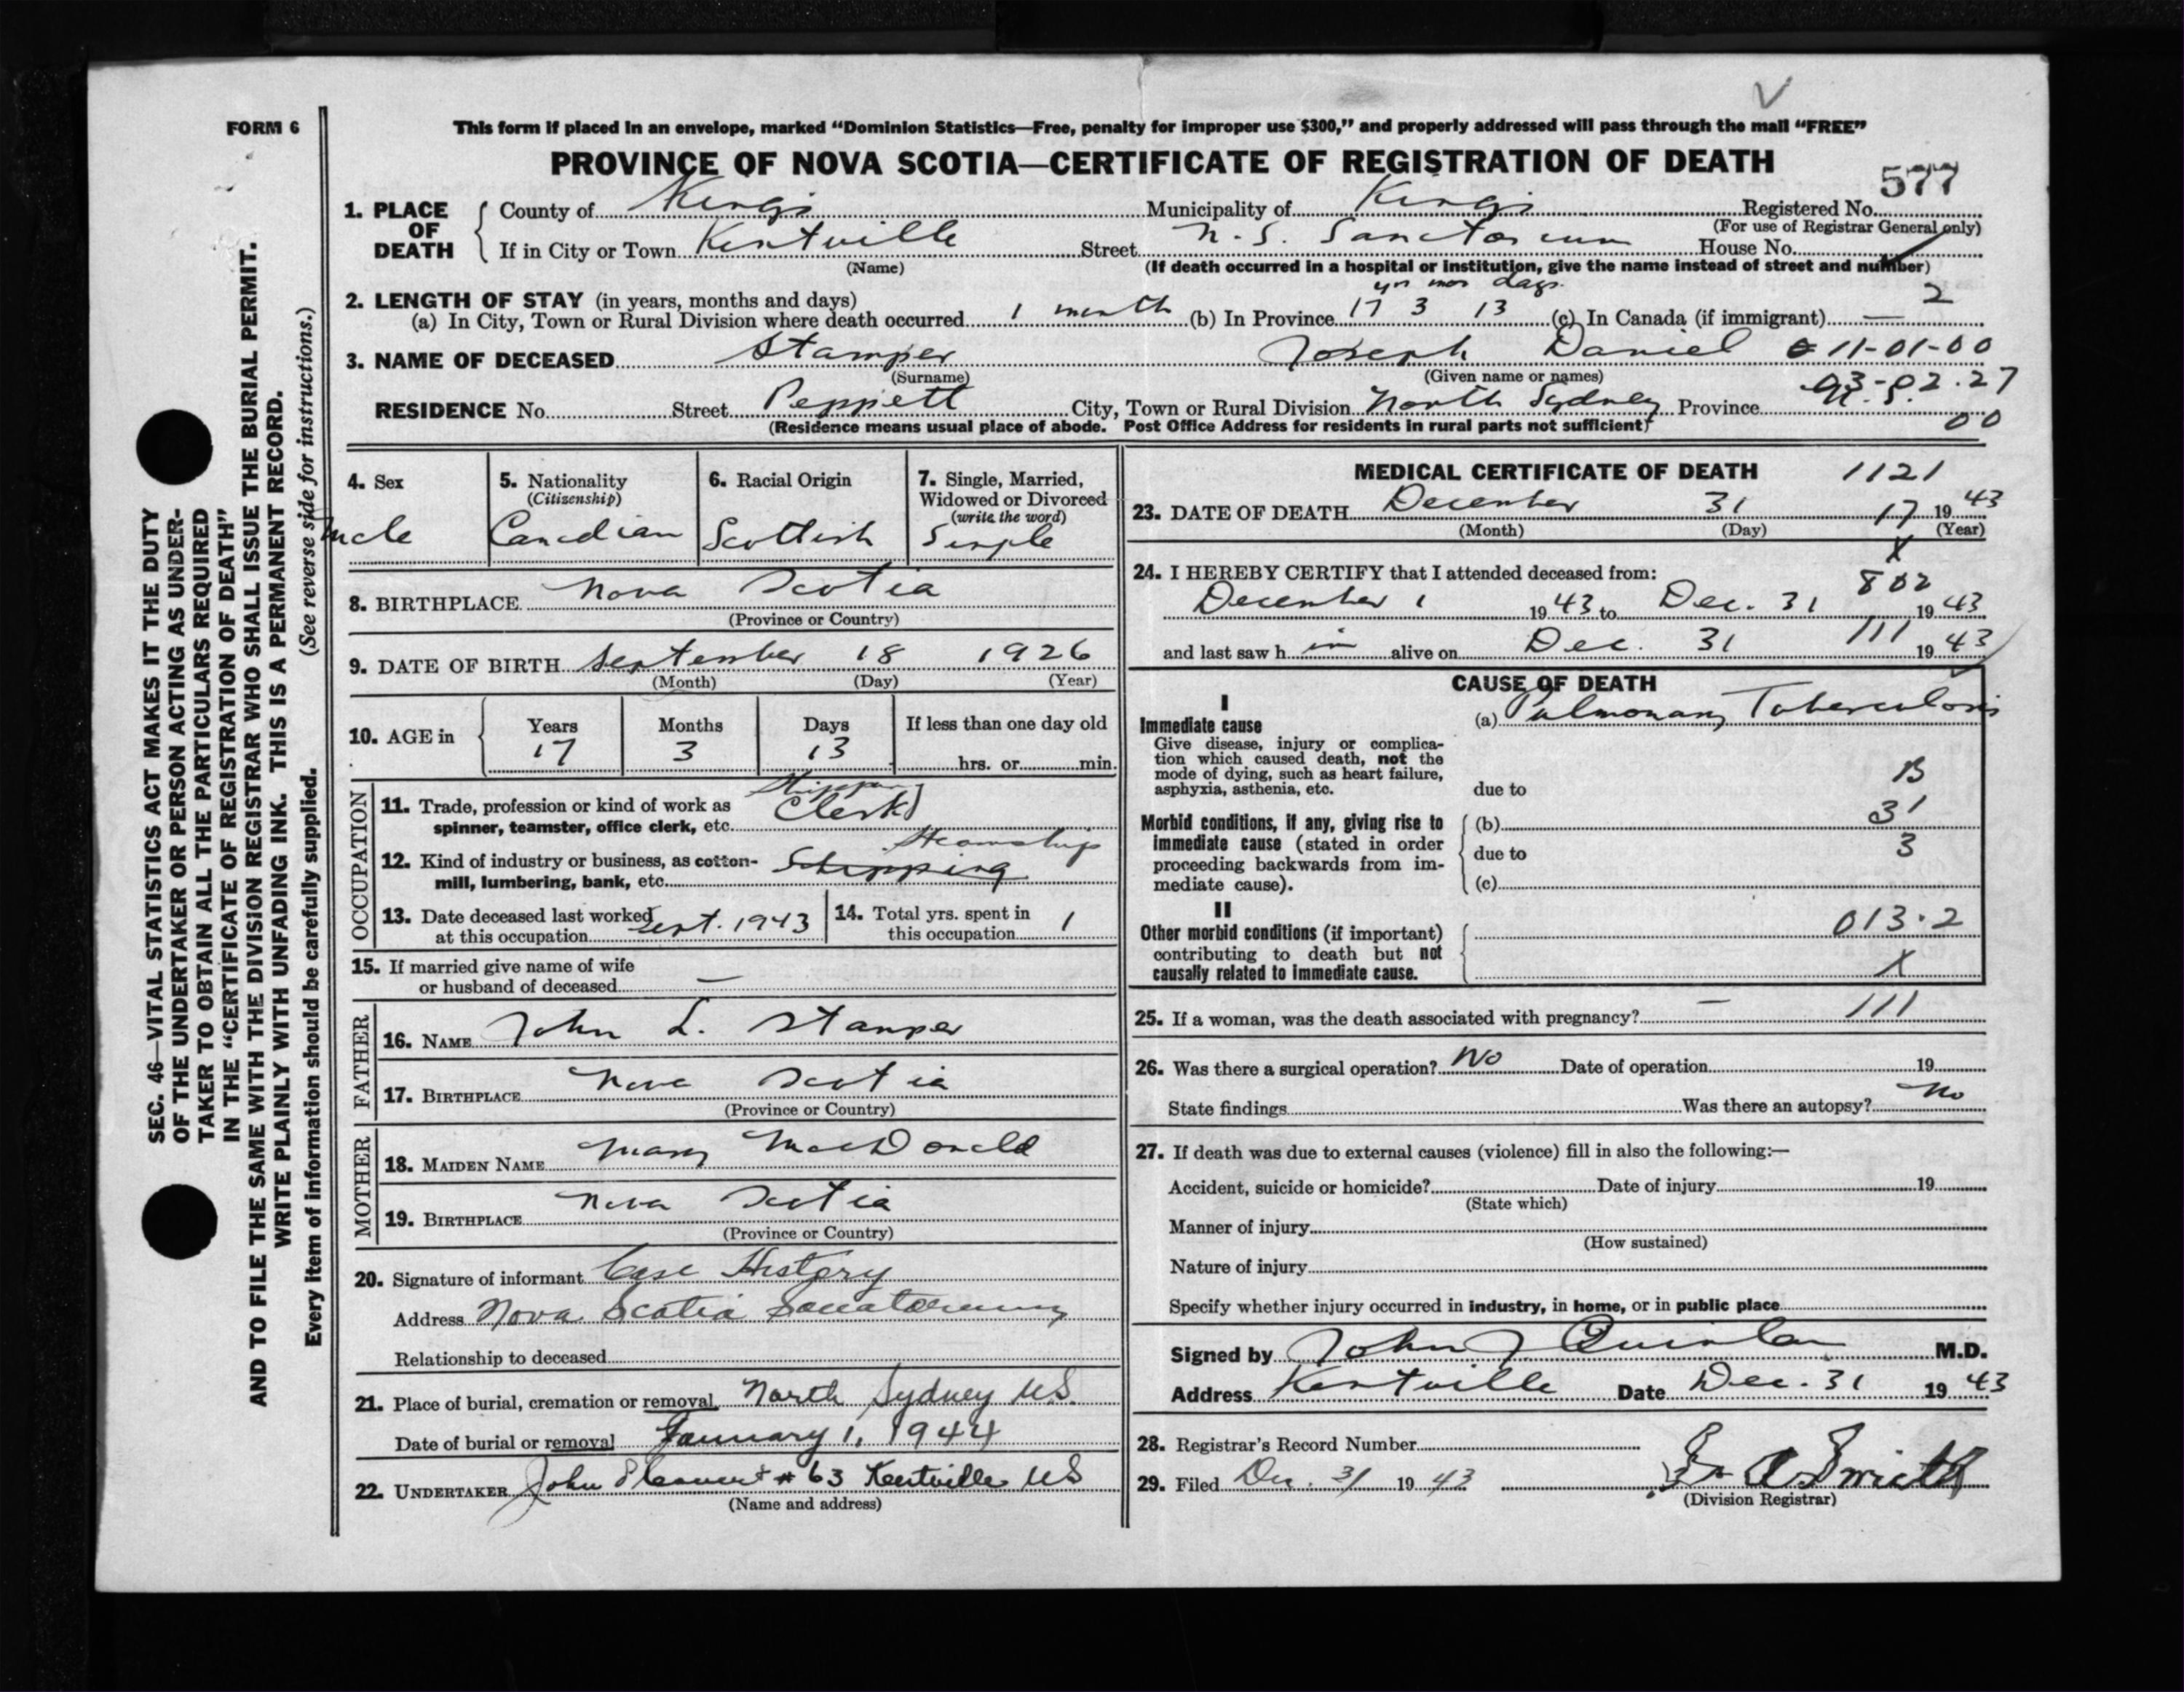 FORM 6
This form if placed in an envelope, marked “Dominion Statistics—Free, penalty for improper use $300,” and properly addressed will pass through the mail “FREE”
PROVINCE OF NOVA SCOTIA—CERTIFICATE OF REGISTRATION OF DEATH
577
1. PLACE OF DEATH County of Kings Municipality of Kings Registered No.
(For use of Registrar General only)
If in City or Town Kentville Street N. S. Sanatorium House No.
(Name) (If death occurred in a hospital or institution, give the name instead of street and number)
2. LENGTH OF STAY (in years, months and days) yrs mos days 2
(a) In City, Town or Rural Division where death occurred 1 month (b) In Province 17 3 13 (c) In Canada (if immigrant) —
3. NAME OF DECEASED Stamper Joseph Daniel 11-01-00
(Surname) (Given name or names) 93-02.27
RESIDENCE No. Street Peppett City, Town or Rural Division North Sydney Province N.S.
(Residence means usual place of abode. Post Office Address for residents in rural parts not sufficient) 00
4. Sex Male
5. Nationality (Citizenship) Canadian
6. Racial Origin Scottish
7. Single, Married, Widowed or Divorced (write the word) Single
8. BIRTHPLACE Nova Scotia
(Province or Country)
9. DATE OF BIRTH September 18 1926
(Month) (Day) (Year)
10. AGE in Years 17 Months 3 Days 13 If less than one day old hrs. or min.
OCCUPATION
11. Trade, profession or kind of work as Shipping
spinner, teamster, office clerk, etc. Clerk
12. Kind of industry or business, as cotton- Shipping Steamship
mill, lumbering, bank, etc.
13. Date deceased last worked at this occupation Sept. 1943
14. Total yrs. spent in this occupation 1
15. If married give name of wife
or husband of deceased —
FATHER
16. NAME John L. Stamper
17. BIRTHPLACE Nova Scotia
(Province or Country)
MOTHER
18. MAIDEN NAME Mary MacDonald
19. BIRTHPLACE Nova Scotia
(Province or Country)
20. Signature of informant Case History
Address Nova Scotia Sanatorium
Relationship to deceased
21. Place of burial, cremation or removal North Sydney NS.
Date of burial or removal January 1, 1944
22. UNDERTAKER John # 63 Kentville NS
(Name and address)
MEDICAL CERTIFICATE OF DEATH 1121
23. DATE OF DEATH December 31 17 1943
(Month) (Day) (Year)
X
24. I HEREBY CERTIFY that I attended deceased from: 802
December 1 1943 to Dec. 31 1943
and last saw h im alive on Dec. 31 111 1943
CAUSE OF DEATH
I
Immediate cause (a) Pulmonary Tuberculosis
Give disease, injury or complica-
tion which caused death, not the
mode of dying, such as heart failure, B
asphyxia, asthenia, etc. due to
Morbid conditions, if any, giving rise to (b) 31
immediate cause (stated in order due to 3
proceeding backwards from im-
mediate cause). (c)
II
Other morbid conditions (if important) 013.2
contributing to death but not
causally related to immediate cause. X
25. If a woman, was the death associated with pregnancy? — 111
26. Was there a surgical operation? No Date of operation 19
State findings Was there an autopsy? No
27. If death was due to external causes (violence) fill in also the following:—
Accident, suicide or homicide? Date of injury 19
(State which)
Manner of injury
(How sustained)
Nature of injury
Specify whether injury occurred in industry, in home, or in public place
Signed by John J Quinlan M.D.
Address Kentville Date Dec. 31 1943
28. Registrar's Record Number
29. Filed Dec. 31 1943 Smith
(Division Registrar)
SEC. 46—VITAL STATISTICS ACT MAKES IT THE DUTY
OF THE UNDERTAKER OR PERSON ACTING AS UNDER-
TAKER TO OBTAIN ALL THE PARTICULARS REQUIRED
IN THE “CERTIFICATE OF REGISTRATION OF DEATH”
AND TO FILE THE SAME WITH THE DIVISION REGISTRAR WHO SHALL ISSUE THE BURIAL PERMIT.
WRITE PLAINLY WITH UNFADING INK. THIS IS A PERMANENT RECORD.
Every item of information should be carefully supplied. (See reverse side for instructions.)